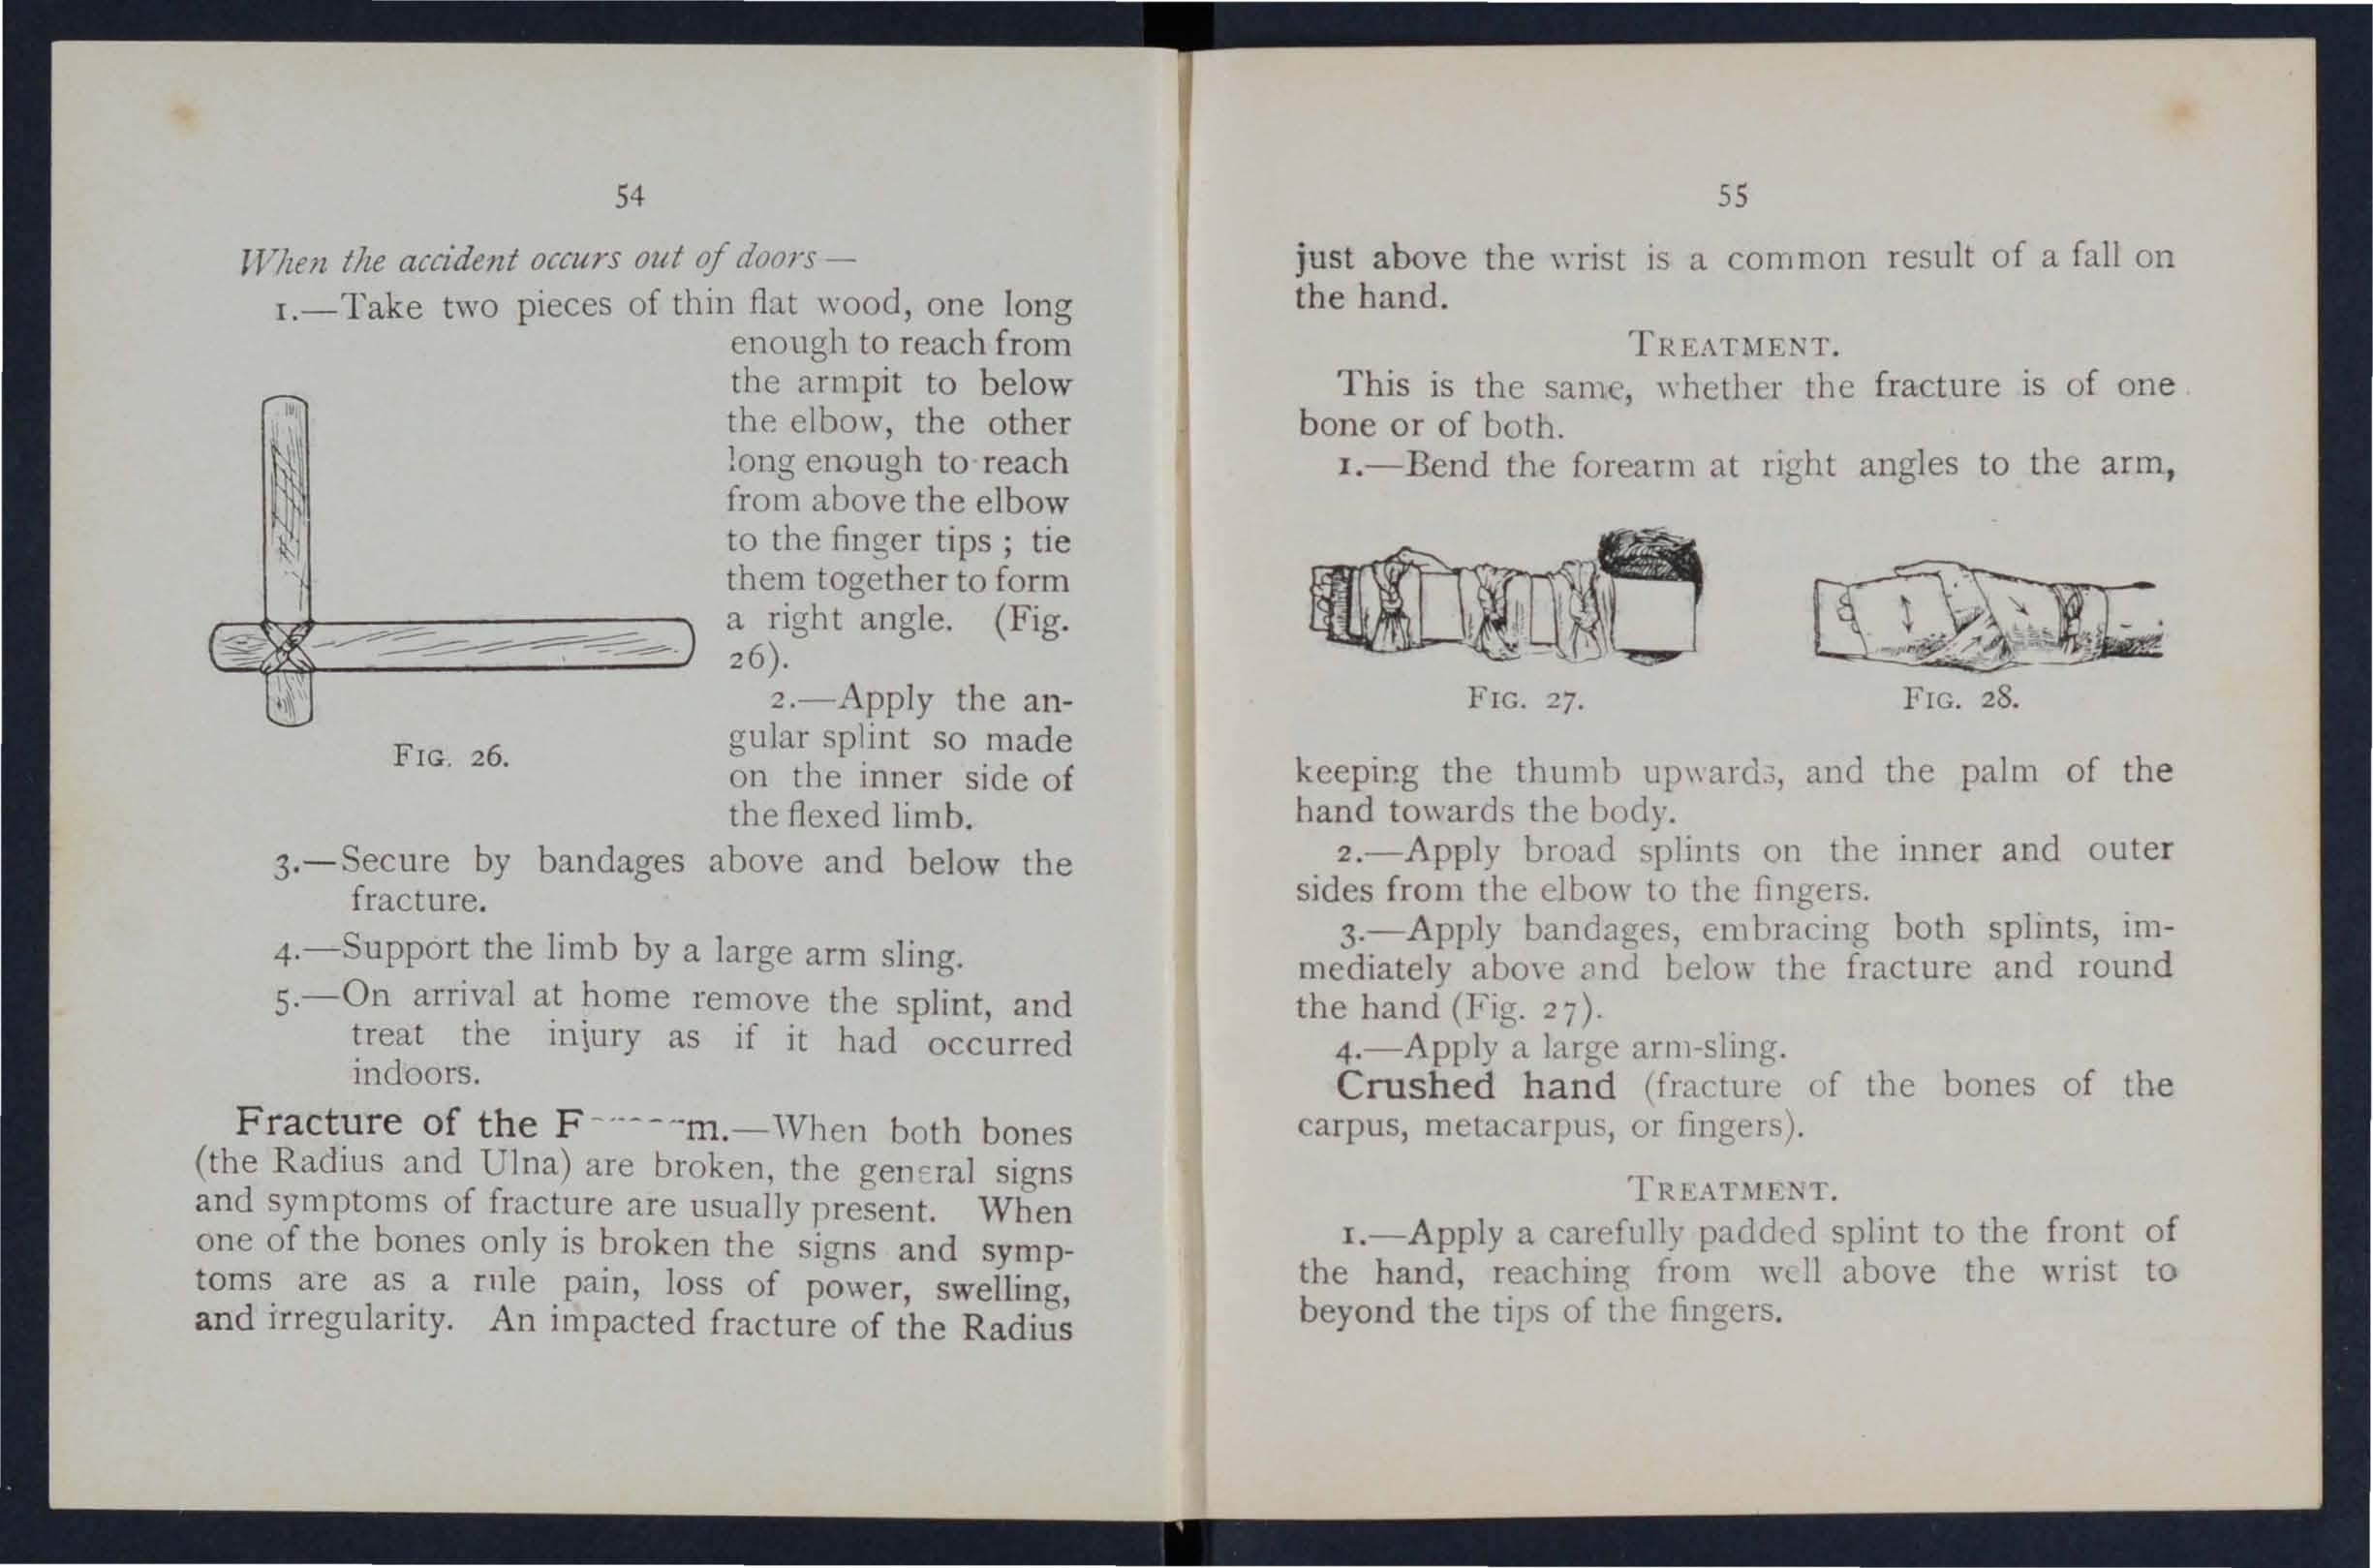 54
When the accident occurs out of doors—
1.—Take two pieces of thin flat wood, one long
enough to reach from
the armpit to below
the elbow, the other
long enough to reach
from above the elbow
to the finger tips ; tie
them together to form
a right angle. (Fig.
26).
2.—Apply the an-
gular splint so made
on the inner side of
the flexed limb.
FIG. 26.
3.—Secure by bandages above and below the
fracture.
4.—Support the limb by a large arm sling.
5.—On arrival at home remove the splint, and
treat the injury as if it had occurred
indoors.
Fracture of the F-----m.—When both bones
(the Radius and Ulna) are broken, the general signs
and symptoms of fracture are usually present. When
one of the bones only is broken the signs and symp-
toms are as a rule pain, loss of power, swelling,
and irregularity. An impacted fracture of the Radius
55
just above the wrist is a common result of a fall on
the hand.
TREATMENT.
This is the same, whether the fracture is of one
bone or of both.
1.—Bend the forearm at right angles to the arm,
FIG. 27.
FIG. 28.
keeping the thumb upwards, and the palm of the
hand towards the body.
2.—Apply broad splints on the inner and outer
sides from the elbow to the fingers.
3.—Apply bandages, embracing both splints, im-
mediately above and below the fracture and round
the hand (Fig. 27).
4.—Apply a large arm-sling.
Crushed hand (fracture of the bones of the
carpus, metacarpus, or fingers).
TREATMENT.
1.—Apply a carefully padded splint to the front of
the hand, reaching from well above the wrist to
beyond the tips of the fingers.